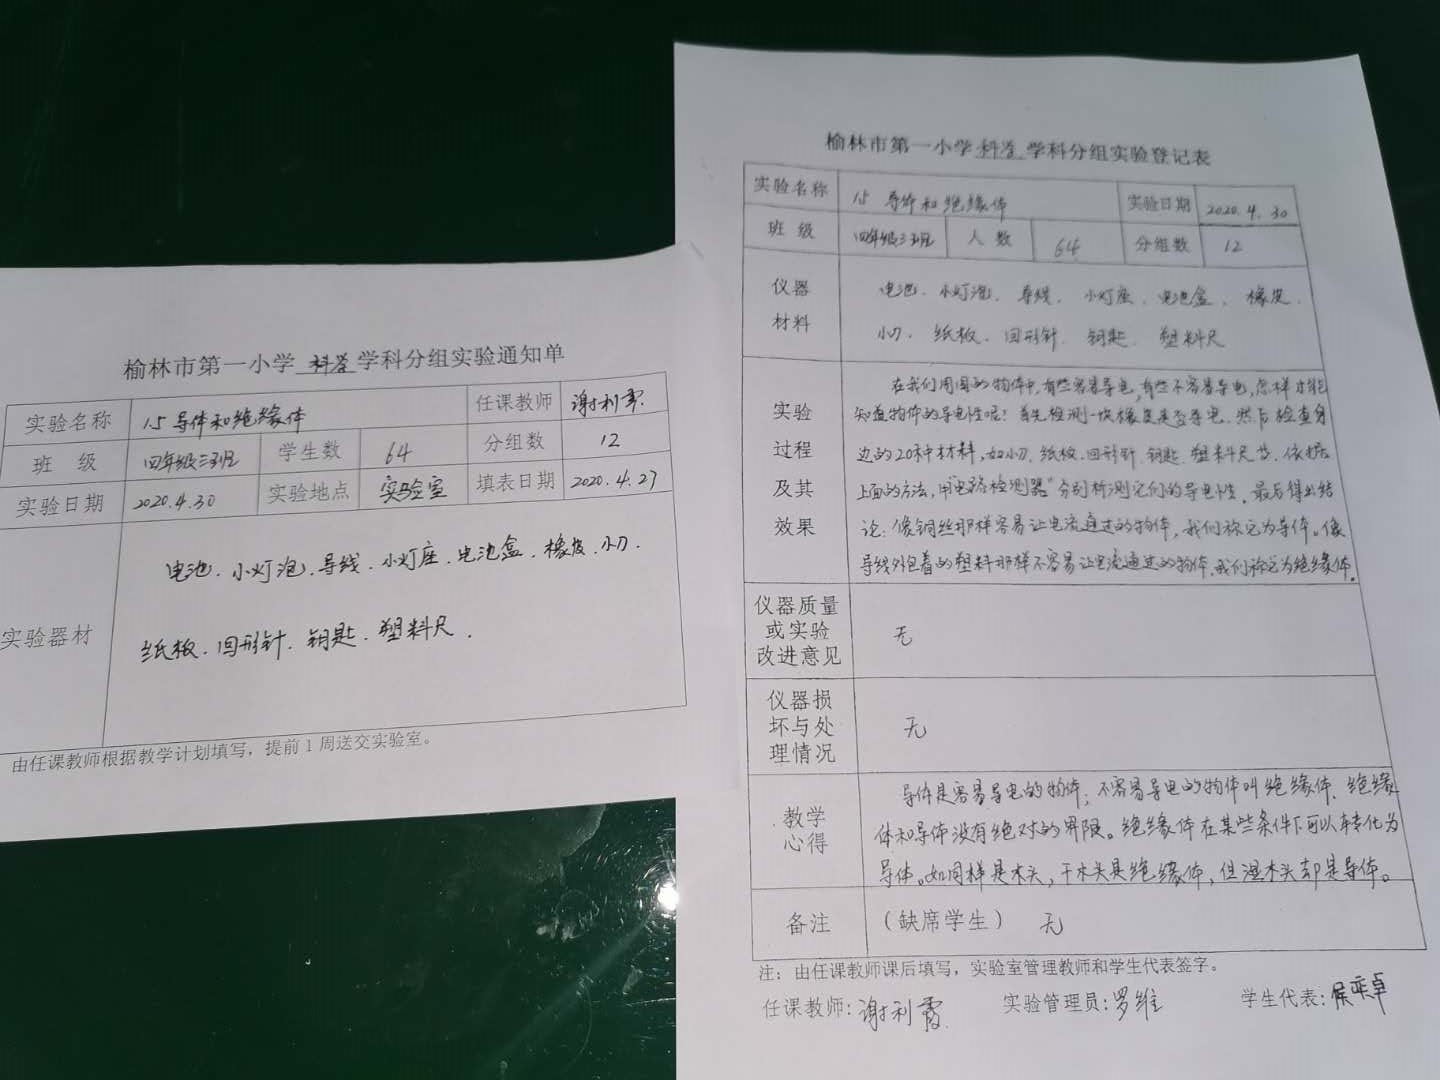 榆林市第一小学 科学 学科分组实验通知单
实验名称 1.5 导体和绝缘体 任课教师 谢利霞
班 级 四年级三班 学生数 64 分组数 12
实验日期 2020.4.30 实验地点 实验室 填表日期 2020.4.27
实验器材
电池、小灯泡、导线、小灯座、电池盒、橡皮、小刀、
纸板、回形针、钥匙、塑料尺、
由任课教师根据教学计划填写，提前1周送交实验室。
榆林市第一小学 科学 学科分组实验登记表
实验名称 1.5 导体和绝缘体 实验日期 2020.4.30
班 级 四年级三班 人 数 64 分组数 12
仪器
材料
电池、小灯泡、导线、小灯座、电池盒、橡皮、
小刀、纸板、回形针、钥匙、塑料尺
实验
过程
及其
效果
在我们周围的物体中，有些容易导电，有些不容易导电，怎样才能
知道物体的导电性呢？首先检测一块橡皮是否导电，然后检查身
边的20种材料，如小刀、纸板、回形针、钥匙、塑料尺等，依据
上面的方法，用“电路检测器”分别析测它们的导电性。最后得出结
论：像铜丝那样容易让电流通过的物体，我们称它为导体。像
导线外包着的塑料那样不容易让电流通过的物体，我们称它为绝缘体。
仪器质量
或实验
改进意见
无
仪器损
坏与处
理情况
无
教学
心得
导体是容易导电的物体；不容易导电的物体叫绝缘体、绝缘
体和导体没有绝对的界限。绝缘体在某些条件下可以转化为
导体。如同样是木头，干木头是绝缘体，但湿木头却是导体。
备注 （缺席学生） 无
注：由任课教师课后填写，实验室管理教师和学生代表签字。
任课教师：谢利霞 实验管理员：罗维 学生代表：侯奕卓